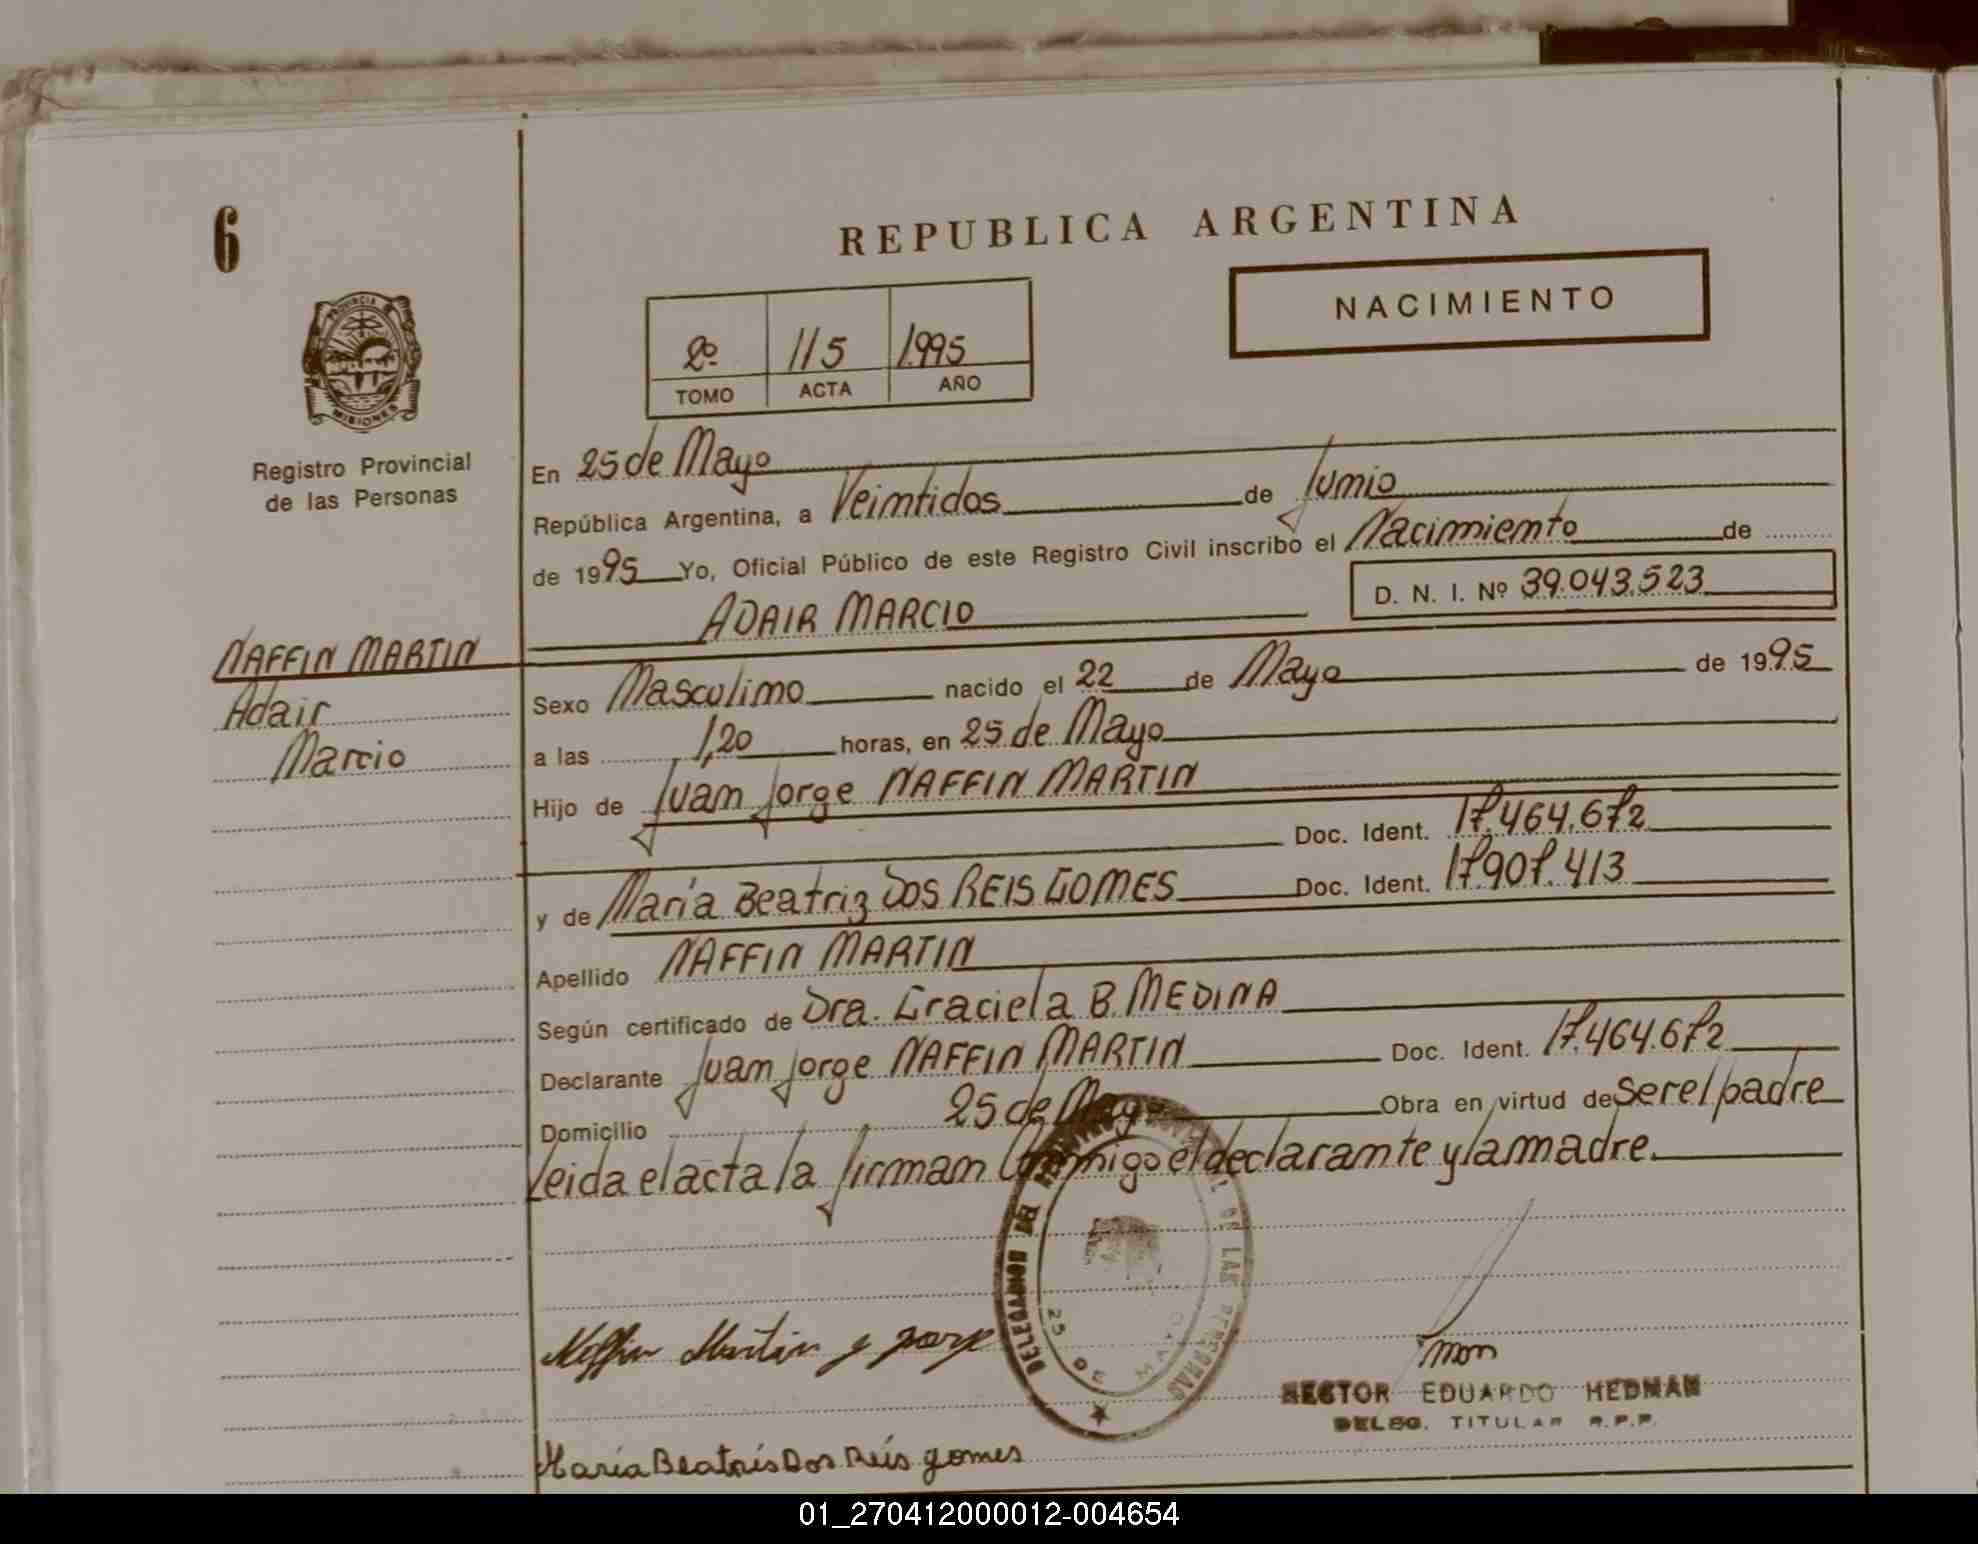 6
REPUBLICA ARGENTINA
NACIMIENTO
2º 115 1995
TOMO ACTA AÑO
PROVINCIA
MISIONES
Registro Provincial
de las Personas
En 25 de Mayo
República Argentina, a Veintidos de Junio
de 1995 Yo, Oficial Público de este Registro Civil inscribo el Nacimiento de
D. N. I. Nº 39.043.523
ADAIR MARCIO
NAFFIN MARTIN
Adair
Marcio
Sexo Masculino nacido el 22 de Mayo de 1995
a las 1,20 horas, en 25 de Mayo
Hijo de Juan Jorge NAFFIN MARTIN
Doc. Ident. 17.464.672
y de María Beatriz DOS REIS GOMES Doc. Ident. 17.907.413
Apellido NAFFIN MARTIN
Según certificado de Dra. Graciela B. MEDINA
Declarante Juan Jorge NAFFIN MARTIN Doc. Ident. 17.464.672
Domicilio 25 de Mayo Obra en virtud de ser el padre
Leida el acta la firman conmigo el declarante y la madre.
DELEGACION DEL REGISTRO PROVINCIAL DE LAS PERSONAS
25 DE MAYO
Naffin Martin J Jorge
HECTOR EDUARDO HEDMAN
DELEG. TITULAR R.P.P.
María Beatris Dos Reis gomes
01_270412000012-004654